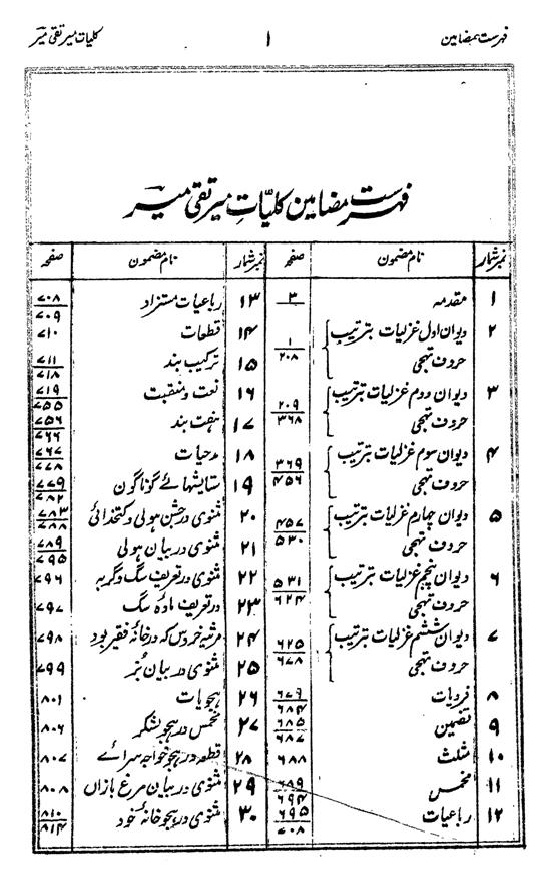 فہرست مضامین ۱ کلیات میر تقی میرؔ
فہرست مضامین کلیّاتِ میر تقی میرؔ
نمبر شمار نام مضمون صفحہ
۱ مقدمہ ۳
۲ دیوان اول غزلیات بترتیب
حروف تہجی ۱ / ۲۰۸
۳ دیوان دوم غزلیات بترتیب
حروف تہجی ۲۰۹ / ۳۶۸
۴ دیوان سوم غزلیات بترتیب
حروف تہجی ۳۶۹ / ۴۵۶
۵ دیوان چہارم غزلیات بترتیب
حروف تہجی ۴۵۷ / ۵۳۰
۶ دیوان پنجم غزلیات بترتیب
حروف تہجی ۵۳۱ / ۶۲۴
۷ دیوان ششم غزلیات بترتیب
حروف تہجی ۶۲۵ / ۶۷۸
۸ فردیات ۶۷۹ / ۶۸۴
۹ تضمین ۶۸۵ / ۶۸۷
۱۰ مثلث ۶۸۸
۱۱ مخمس ۶۸۹ / ۶۹۴
۱۲ رباعیات ۶۹۵ / ۷۰۸
نمبر شمار نام مضمون صفحہ
۱۳ رباعیات مستزاد ۷۰۸ / ۷۰۹
۱۴ قطعات ۷۱۰
۱۵ ترکیب بند ۷۱۱ / ۷۱۸
۱۶ نعت و منقبت ۷۱۹ / ۷۵۵
۱۷ ہفت بند ۷۵۶ / ۷۶۶
۱۸ مدحیات ۷۶۷ / ۷۷۸
۱۹ ستایشہائے گوناگون ۷۷۹ / ۷۸۲
۲۰ مثنوی در جشن ہولی و کتخدائی ۷۸۳ / ۷۸۸
۲۱ مثنوی در بیان ہولی ۷۸۹ / ۷۹۵
۲۲ مثنوی در تعریف سگ و گربہ ۷۹۶
۲۳ در تعریف مادۂ سگ ۷۹۷
۲۴ مرثیۂ خروس کہ در خانۂ فقیر بود ۷۹۸
۲۵ مثنوی در بیان بُز ۷۹۹
۲۶ ہجویات ۸۰۱
۲۷ مخمس در ہجو لشکر ۸۰۶
۲۸ قطعہ در ہجو خواجہ سرائے ۸۰۷
۲۹ مثنوی در بیان مرغ بازاں ۸۰۸
۳۰ مثنوی در ہجو خانۂ خود ۸۱۰ / ۸۱۴